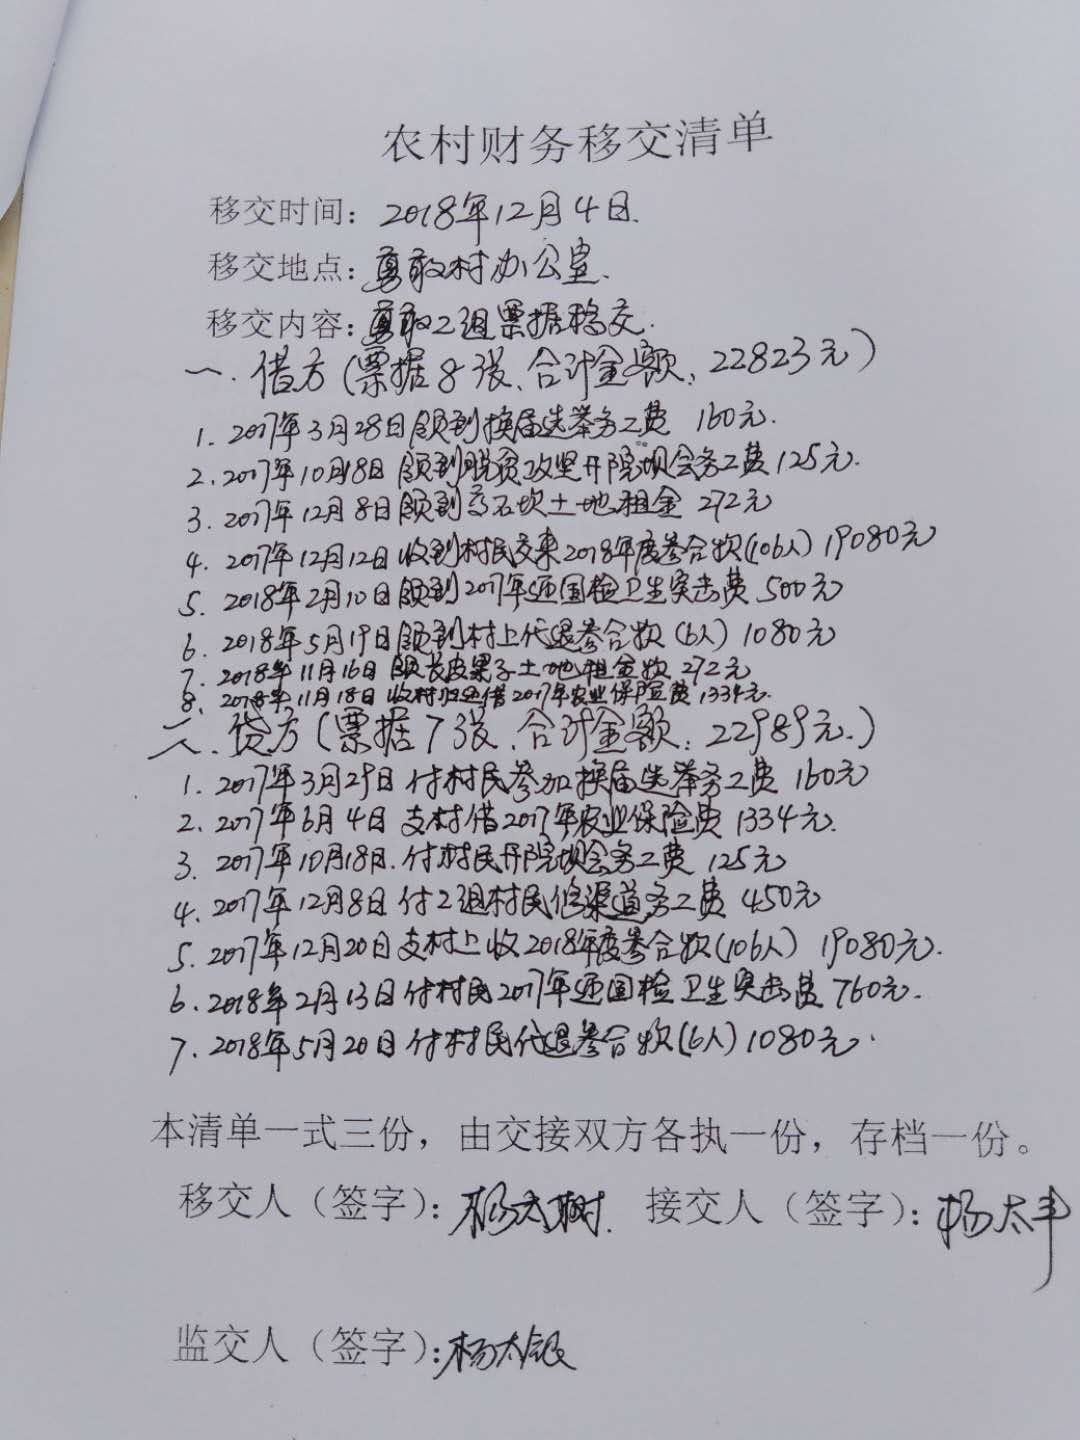 农村财务移交清单
移交时间：2018年12月4日.
移交地点：勇敢村办公室.
移交内容：勇敢2组票据移交.
一.借方(票据8张、合计金额：22823元)
1.2017年3月28日领到换届选举务工费 160元.
2.2017年10月18日领到脱贫攻坚开院坝会务工费125元.
3.2017年12月8日领到 石坎土地租金 272元
4.2017年12月12日收到村民交来2018年度参合款(106人)19080元
5.2018年2月10日领到2017年迎国检卫生突击费500元
6.2018年5月19日领到村上代退参合款(6人)1080元
7.2018年11月16日领 皮果子土地租金款 272元
8.2018年11月18日收村归还借2017年农业保险费1334元.
二.贷方(票据7张、合计金额：22989元.)
1.2017年3月29日付村民参加换届选举务工费 160元
2.2017年6月4日支村借2017年农业保险费1334元.
3.2017年10月18日.付村民开院坝会务工费 125元
4.2017年12月8日付2组村民修渠道务工费 450元
5.2017年12月20日支村上收2018年度参合款(106人) 19080元.
6.2018年2月13日付村民2017年迎国检卫生突击费760元.
7.2018年5月20日付村民代退参合款(6人)1080元.
本清单一式三份，由交接双方各执一份，存档一份。
移交人（签字）：杨太树. 接交人（签字）：杨太丰
监交人（签字）：杨太银